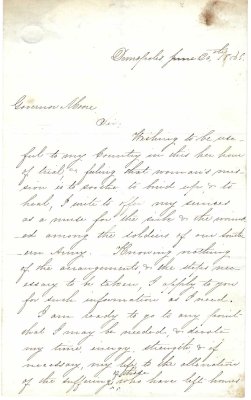 Demopolis June 20th 1861.
Governor Moore
Sir.
Wishing to be use-
ful to my Country in this her hour
of trial, & feeling that woman's mis-
sion is to soothe to bind up & to
heal, I write to offer my services
as a nurse for the sick & the wound-
ed among the soldiers of our South-
ern Army. Knowing nothing
of the arrangements & the steps nec-
essary to be taken, I apply to you
for such information as I need.
I am ready to go to any point
that I may be needed, & devote
my time, energy, strength & if
necessary, my life to the alleviation
of the suffering of those who have left homes